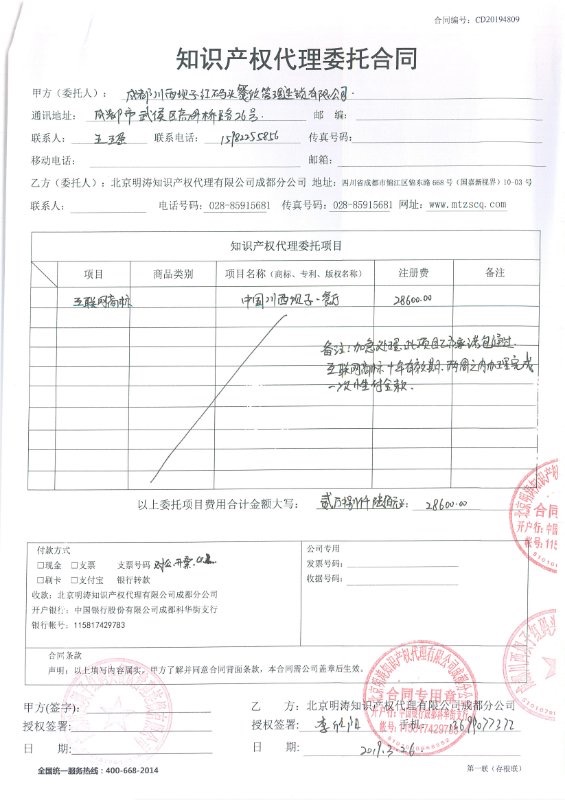 合同编号：CD20194809
知识产权代理委托合同
甲方（委托人）： 成都川西坝子红码头餐饮管理连锁有限公司
通讯地址： 成都市武侯区高升桥东路26号 邮 编：
联系人： 联系电话： 15982255856 传真号码：
移动电话： 邮箱：
乙方（委托人）：北京明涛知识产权代理有限公司成都分公司 地址：四川省成都市锦江区锦东路668号（国嘉新视界）10-03号
联系人： 电话号码：028-85915681 传真号码：028-85915681 网址：www.mtzscq.com
知识产权代理委托项目
项目 商品类别 项目名称（商标、专利、版权名称） 注册费 备注
互联网商标 中国川西坝子·餐厅 28600.00
备注：加急处理，此项目乙方承诺包通过.
互联网商标十年有效期，两周之内办理完成
一次性付全款.
以上委托项目费用合计金额大写： 贰万捌仟陆佰元 ¥： 28600.00
付款方式
□现金 □支票 支票号码
□刷卡 □支付宝 银行转款
收款：北京明涛知识产权代理有限公司成都分公司
开户银行：中国银行股份有限公司成都科华街支行
银行帐号：115817429783
公司专用
发票号码：
收据号码：
合同条款
声明，以上填写内容属实，甲方了解并同意合同背面条款，本合同需公司盖章后生效。
甲方(签字)：
授权签署：
日 期：
乙 方：北京明涛知识产权代理有限公司成都分公司
授权签署： 手机：
日 期： 2019.3.26
北京明涛知识产权代理有限公司成都分公司
合同专用章
开户行：中国银行成都科华街支行
账号：115817429783
全国统一服务热线：400-668-2014
第一联（存根联）